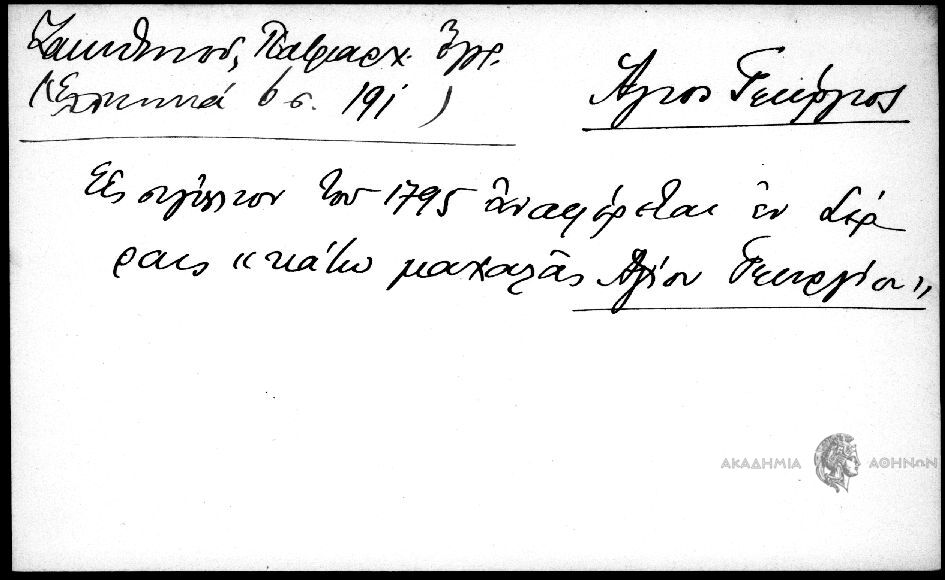 Ζακυθηνοῦ, Πατριαρχ. Ἔγγρ.
(Ἑλληνικά 6 σ. 191)
Ἅγιος Γεώργιος
Εἰς σιγίλλιον τοῦ 1795 ἀναφέρεται ἐν Σέρ
ραις «κάτω μαχαλᾶς Ἁγίου Γεωργίου»
ΑΚΑΔΗΜΙΑ ΑΘΗΝΩΝ